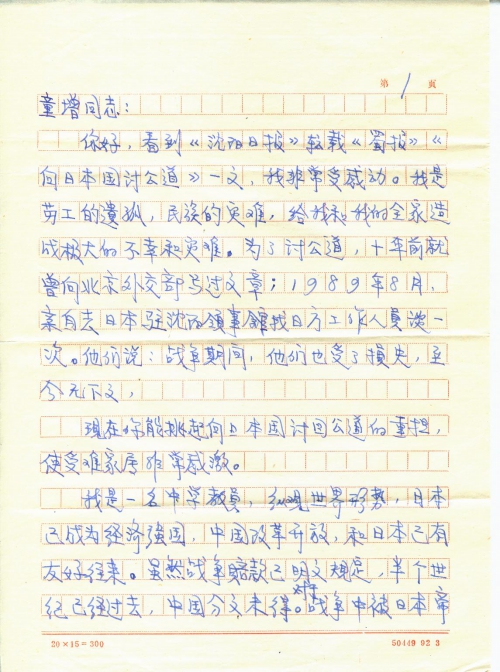 第 1 页
童增同志：
你好，看到《沈阳日报》转载《蜀报》《
向日本国讨公道》一文，我非常受感动。我是
劳工的遗孤，民族的灾难，给我和我的全家造
成极大的不幸和灾难。为了讨公道，十年前就
曾向北京外交部写过文章；1989年8月，
亲自去日本驻沈阳領事館找日方工作人員谈一
次。他们说：战争期间，他们也受了損失，至
今无下文，
现在你能挑起向日本国讨回公道的重担，
使受难家属非常感激。
我是一名中学教員，纵观世界形势，日本
已成为经济强国，中国改革开放，和日本已有
友好往来。虽然战争赔款已明文规定，半个世
纪已经过去，中国分文未得。对于战争中被日本帝
20×15=300
50449 92 3